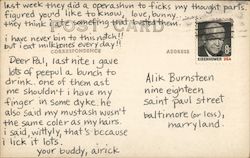 last week they did a operashun to ficks my thought parts.
figured you'd like to know, love, bunny.
they think i ate something that butted them.
i have never bin to this ranch!!
but i eat milkbones every day!!
POST CARD
CORRESPONDENCE
ADDRESS
EISENHOWER USA
8c
Dear Pal, last nite i gave
lots of peepul a bunch to
drink. one of them ast
me shouldn't i have my
finger in some dyke. he
also said my mustash wusn't
the same coler as my hairs.
i said, wittyly, that's because
i lick it lots.
your buddy, airick
Alik Burnsteen
nine eighteen
saint paul street
baltimore (or less),
marryland.